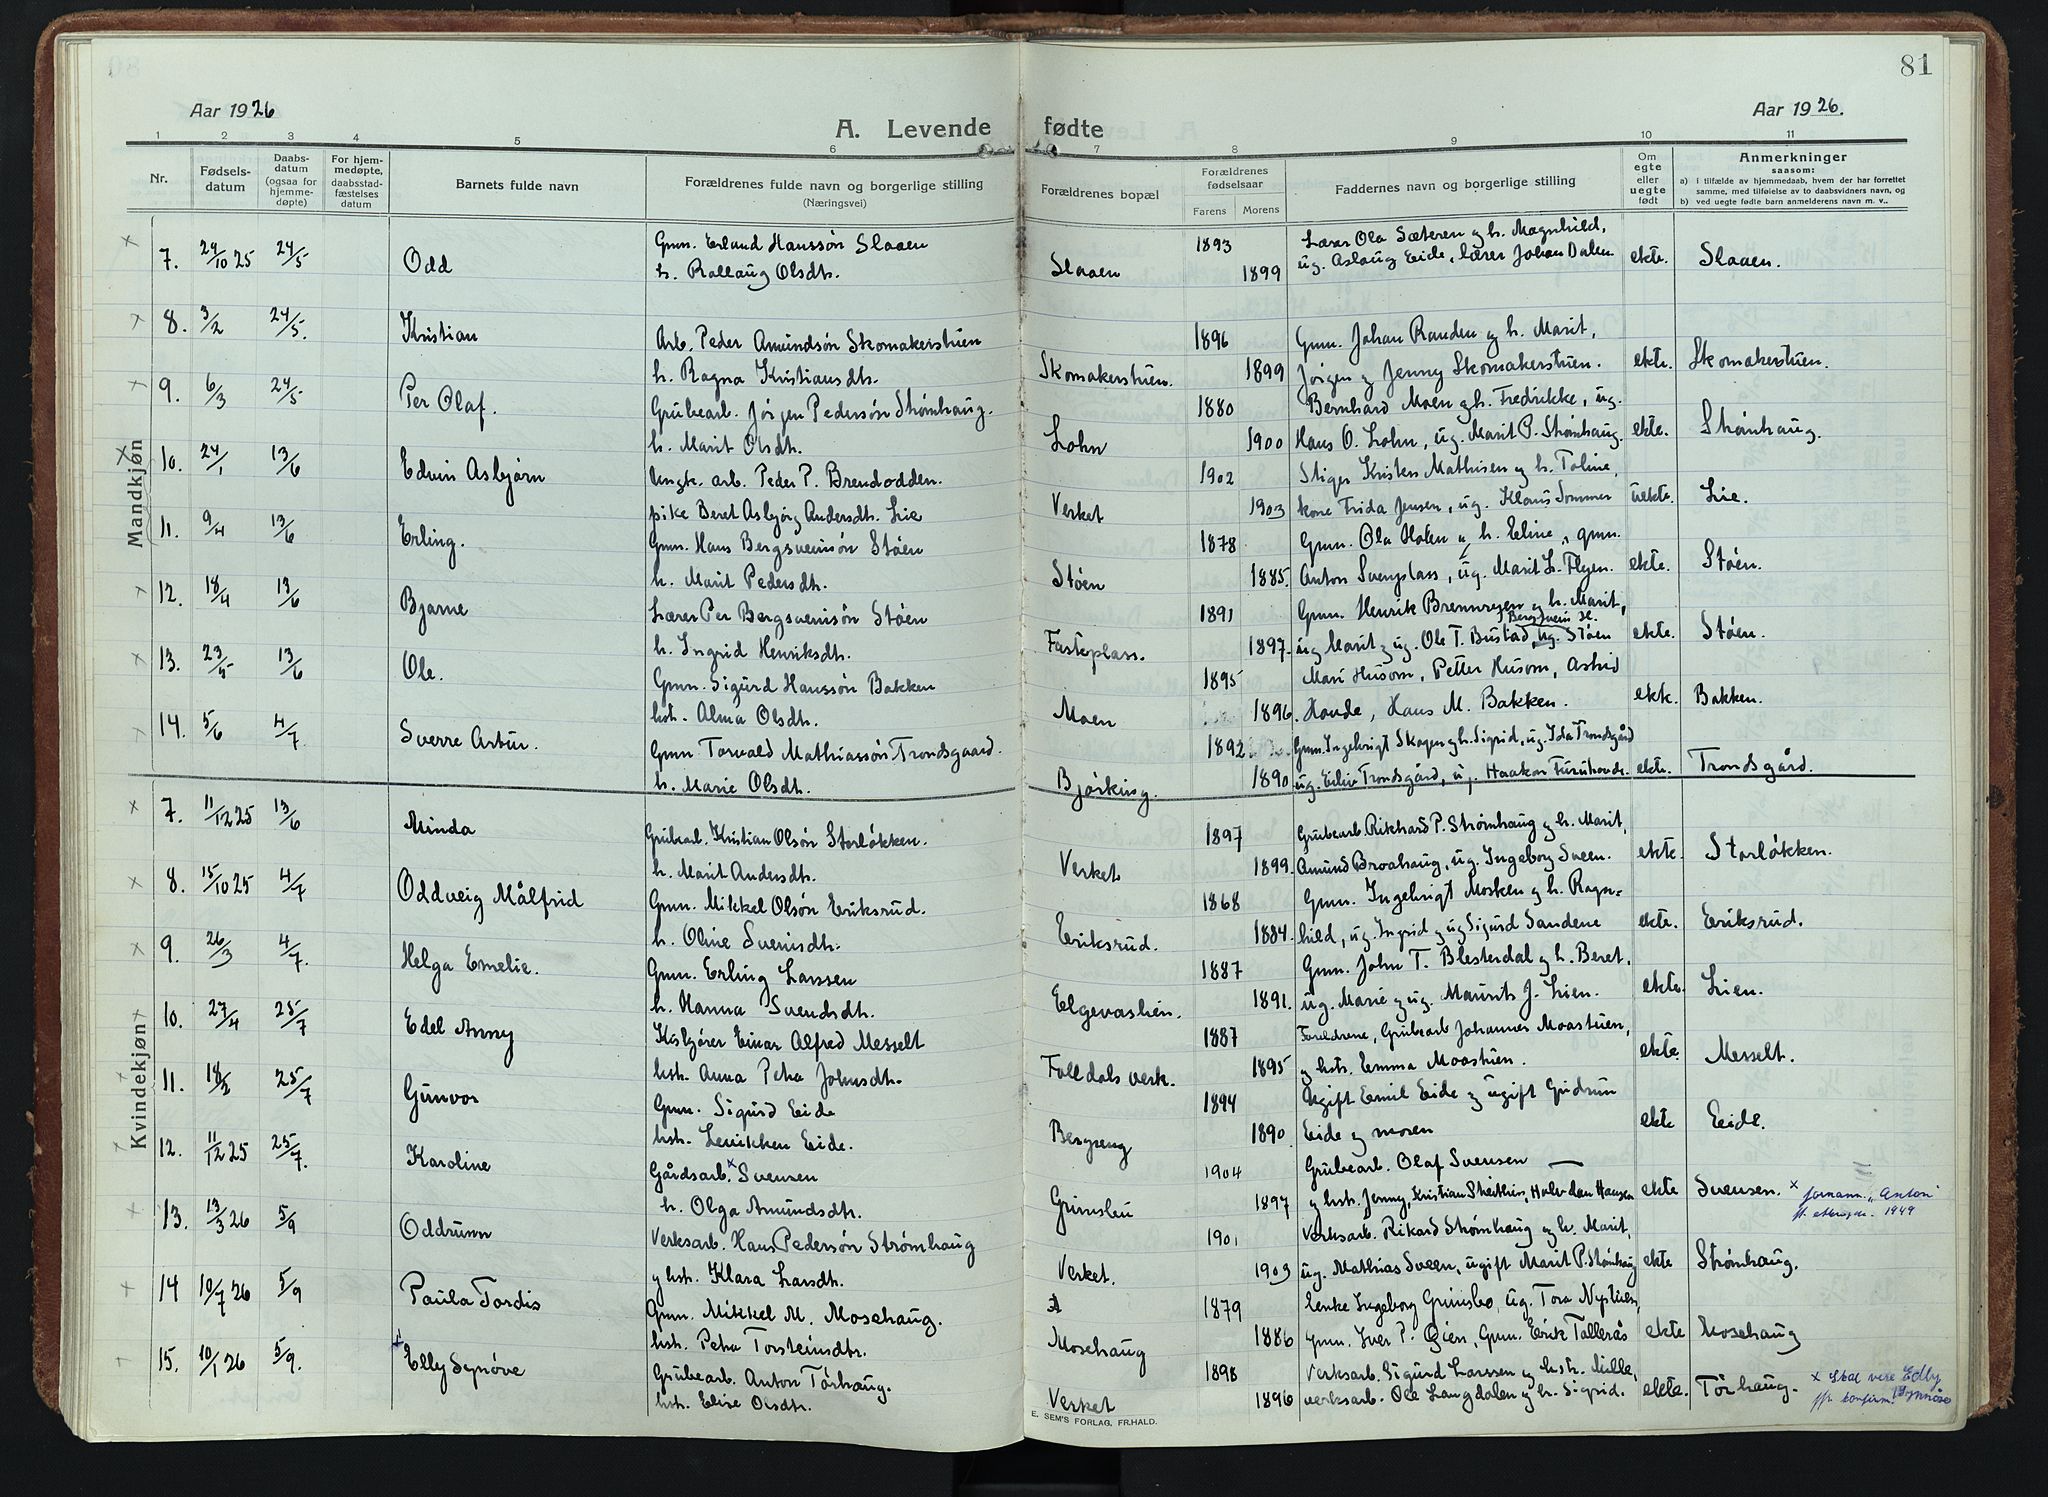 81
Aar 1926
Aar 1926.
A. Levende fødte
1 2 3 4 5 6 7 8 9 10 11
Nr.
Fødselsdatum
Daabsdatum (ogsaa for hjemmedøpte)
For hjemmedøpte, daabsstadfæstelses datum
Barnets fulde navn
Forældrenes fulde navn og borgerlige stilling (Næringsvei)
Forældrenes bopæl
Forældrenes fødselsaar
Farens Morens
Faddernes navn og borgerlige stilling
Om egte eller uegte født
Anmerkninger
saasom:
a) i tilfælde av hjemmedaab, hvem der har forrettet samme, med tilføielse av to daabsvidners navn, og
b) ved uegte fødte barn anmelderens navn m. v..
Mandkjøn
7. 24/10 25 24/5 Odd Gmn. Erland Hanssøn Slaaen 1893 Lærer Ola Sæteren og h. Magnhild,
h. Rallaug Olsdtr. Slaaen 1899 ug. Aslaug Eide, lærer Johan Dalen ekte. Slaaen.
8. 3/2 24/5. Kristian Arb. Peder Amundsøn Skomakerstuen 1896 Gmn. Johan Randen og h. Marit,
h. Ragna Kristiansdtr. Skomakerstuen. 1899 Jørgen og Jenny Skomakerstuen. ekte. Skomakerstuen.
9. 6/3 24/5 Per Olaf. Grubearb. Jørgen Pedersøn Strømhaug. 1880 Bernhard Moen og h. Fredrikke, ug.
h. Marit Olsdtr. Lohn 1900 Hans O. Lohn, ug. Marit P. Strømhaug. ekte. Strømhaug.
10. 24/1 13/6 Edvin Asbjørn Ungk. arb. Peder P. Brendodden. 1902 Stiger Kristen Mathisen og h. Toline,
pike Beret Asbjørg Andersdtr. Lie Verket 1903 kone Frida Jensen, ug. Klaus Sommer uekte. Lie.
11. 9/4 13/6 Erling. Gmn. Hans Bergsveinsøn Støen 1878 Gmn. Ola Holen og h. Eline, gmn.
h. Marit Pedersdtr. Støen 1885. Anton Svengplass, ug. Marit L. Flyen. ekte. Støen.
12. 18/4 13/6 Bjarne Lærer Per Bergsveinsøn Støen 1891 Gmn. Henrik Brennmoen og h. Marit,
h. Ingrid Henriksdtr. Fasteplass. 1897. ug Marit og ug. Ole T. Bustad, ug. Bergsvein H. Støen ekte. Støen.
13. 23/5 13/6 Ole. Gmn. Sigurd Hanssøn Bakken 1895 Mari Husom, Petter Husom, Astrid
hst. Alma Olsdtr. Moen 1896. Hovde, Hans M. Bakken. ekte. Bakken.
14. 5/6 4/7 Sverre Artur. Gmn Torvald Mathiassøn Trondsgaard. 1892 Gmn. Ingebrigt Skogen og h. Sigrid, ug. Ida Trondsgård
h. Marie Olsdtr. Bjørking. 1890 ug. Eiliv Trondsgård, ug. Haakon Furuhovde. ekte. Trondsgård.
Kvindekjøn
7. 11/12 25 13/6 Minda Grubearb. Kristian Olsøn Storløkken. 1897 Grubearb. Rikhard P. Strømhaug og h. Marit,
h. Marit Andersdtr. Verket 1899. Amund Brohaug, ug. Ingeborg Sveen. ekte. Storløkken.
8. 15/10 25 4/7 Oddveig Målfrid Gmn. Mikkel Olsøn Eriksrud. 1868 Gmn. Ingebrigt Mosken og h. Ragn-
h. Oline Sveinsdtr. Eriksrud. 1884. hild, ug. Ingrid og ug Sigurd Sandene ekte. Eriksrud.
9. 26/3 4/7. Helga Emelie. Gmn. Erling Larssen 1887 Gmn. John T. Blesterdal og h. Beret,
h. Hanna Svendsdtr. Elgevaslien. 1891. ug. Marie og ug. Maurits J. Lien. ekte. Lien.
10. 27/4 25/7 Edel Anny Kiskjører Einar Alfred Messelt 1887 Foreldrene, Grubearb Johannes Moastuen,
hst. Anna Petra Johnsdtr. Folldals verk. 1895 og hst. Emma Moastuen. ekte. Messelt.
11. 18/2 25/7 Gunvor Gmn. Sigurd Eide 1894 Ugift Emil Eide og ugift Gudrun
hst. Lenikken Eide. Bergeng 1890. Eide og moren ekte Eide.
12. 11/12 25 25/7. Karoline Gårdsarb. x Svensen 1904 Grubearb. Olaf Svensen
h. Olga Amundsdtr. Grimsbu 1897 og hst. Jenny, Kristian Streitlien, Halvdan Hansen ekte Svensen. x fornavn „Anton"
1949
13. 13/3 26 5/9 Oddrunn Verksarb. Hans Pedersøn Strømhaug 1901 Verksarb. Rikard Strømhaug og h. Marit,
og hst. Klara Larsdtr. Verket. 1903 ug. Mathias Sveen, ugift Marit P. Strømhaug ekte Strømhaug.
14 10/7 26 5/9 Paula Tordis Gmn. Mikkel M. Mosehaug. 1879 Enke Ingeborg Grimsbo, ug. Tora Nystuen,
hst. Petra Torsteinsdtr. Mosehaug 1886 gmn. Iver P. Øien, Gmn. Erik Tallerås ekte Mosehaug
15. 10/1 26 5/9. x Elly Synøve Grubearb. Anton Tørhaug. 1898 Verksarb. Sigurd Larssen og hst. Lille,
hst. Elise Olsdtr. Verket 1896 verksarb. Ole Langdalen og h. Sigrid. ekte. Tørhaug. x skal være Edby
Synnøve
E. SEM'S FORLAG, FR.HALD.